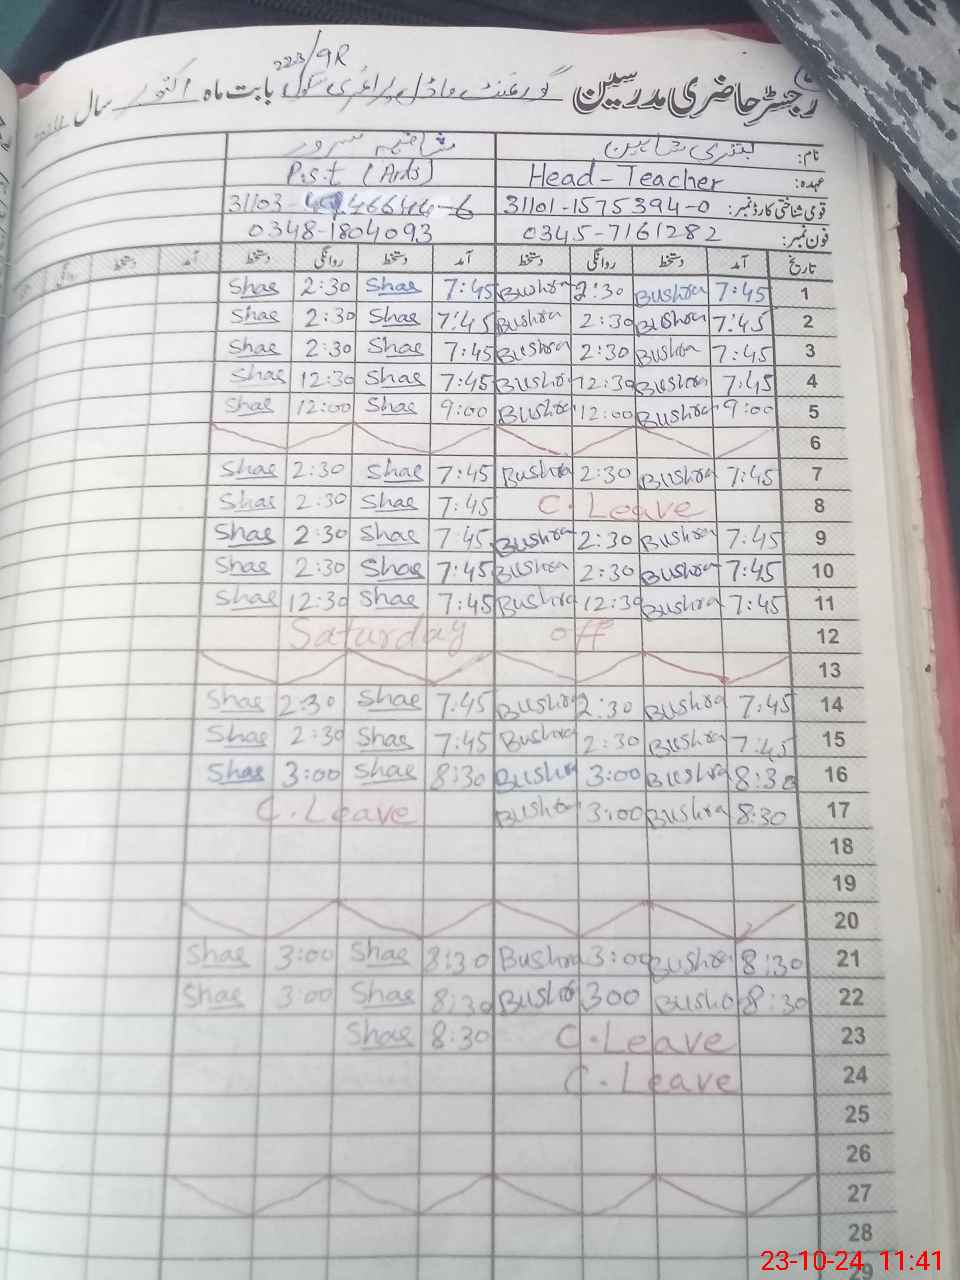 223/9R
رجسٹر حاضری مدرسین گورنمنٹ ماڈل پرائمری سکول بابت ماہ اکتوبر سال
نام: بشریٰ شاہین
عہدہ: Head-Teacher P.S.t (Arts)
قومی شناختی کارڈ نمبر: 31101-1575394-0 31103-
فون نمبر: 0345-7161282 0348-1804093
تاریخ آمد دستخط روانگی دستخط آمد دستخط روانگی دستخط آمد دستخط روانگی
1 7:45 Bushra 2:30 Bushra 7:45 Shas 2:30 Shas
2 7:45 Bushra 2:30 Bushra 7:45 Shas 2:30 Shas
3 7:45 Bushra 2:30 Bushra 7:45 Shas 2:30 Shas
4 7:45 Bushra 12:30 Bushra 7:45 Shas 12:30 Shas
5 9:00 Bushra 12:00 Bushra 9:00 Shas 12:00 Shas
6
7 7:45 Bushra 2:30 Bushra 7:45 Shas 2:30 Shas
8 C.Leave 7:45 Shas 2:30 Shas
9 7:45 Bushra 2:30 Bushra 7:45 Shas 2:30 Shas
10 7:45 Bushra 2:30 Bushra 7:45 Shas 2:30 Shas
11 7:45 Bushra 12:30 Bushra 7:45 Shas 12:30 Shas
12 Saturday off
13
14 7:45 Bushra 2:30 Bushra 7:45 Shas 2:30 Shas
15 7:45 Bushra 2:30 Bushra 7:45 Shas 2:30 Shas
16 8:30 Bushra 3:00 Bushra 8:30 Shas 3:00 Shas
17 8:30 Bushra 3:00 Bushra C.Leave
18
19
20
21 8:30 Bushra 3:00 Bushra 8:30 Shas 3:00 Shas
22 8:30 Bushra 300 Bushra 8:30 Shas 3:00 Shas
23 C.Leave 8:30 Shas
24 C.Leave
25
26
27
28
29
23-10-24 11:41